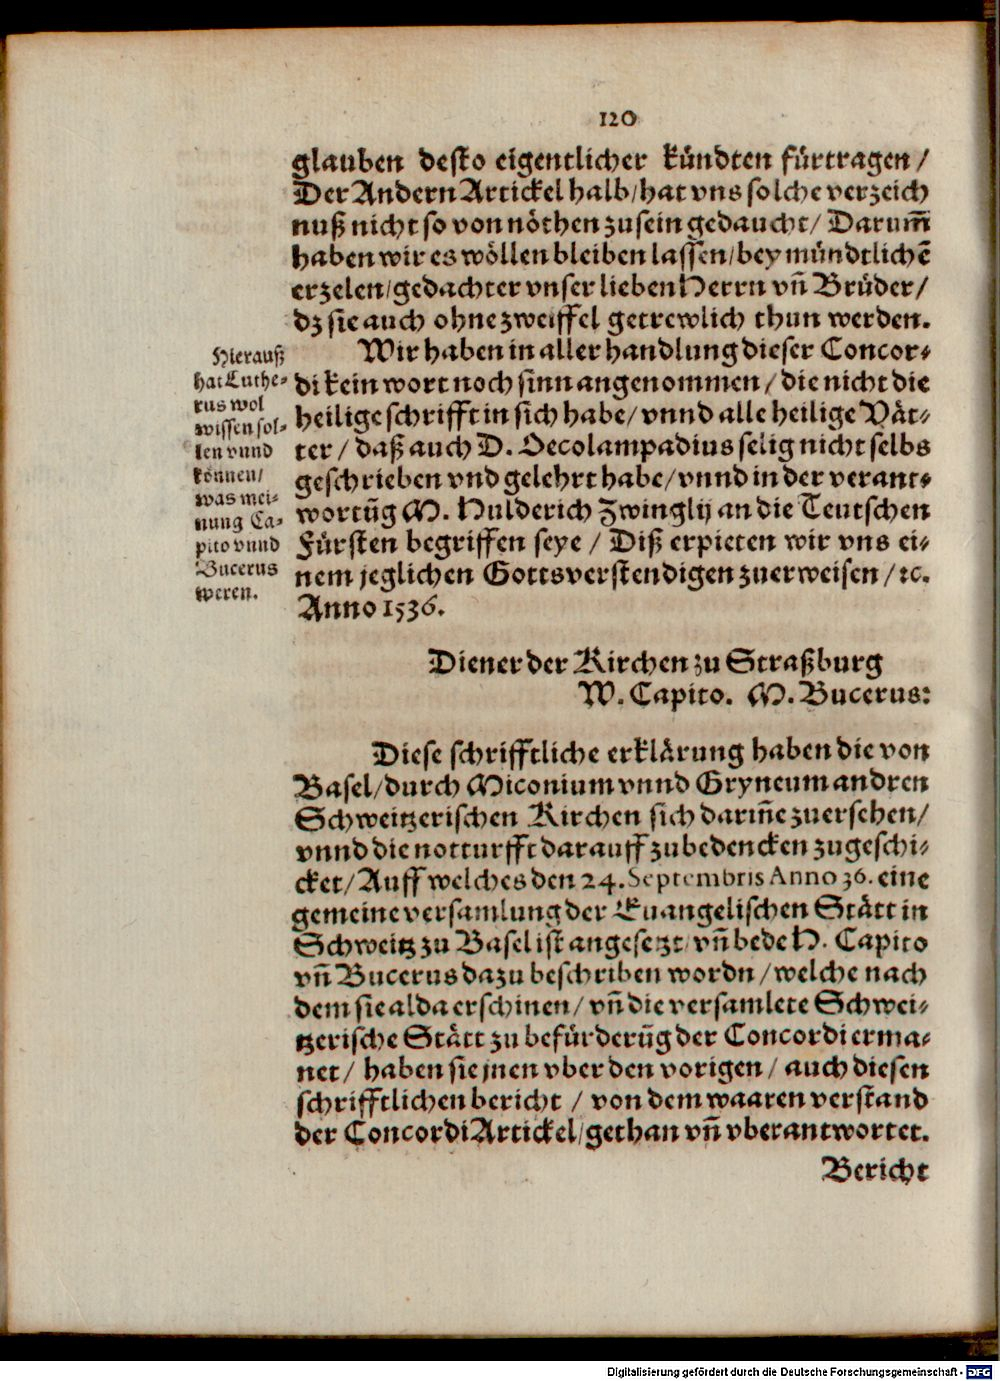 120
glauben desto eigentlicher kündten fürtragen/
Der Andern Artickel halb/hat vns solche verzeich
nuß nicht so von nöthen zusein gedaucht/ Darum̃
haben wir es wöllen bleiben lassen/bey mündtlichẽ
erzelen/gedachter vnser lieben Herrn vñ Brüder/
dz sie auch ohne zweiffel getrewlich thun werden.
Wir haben in aller handlung dieser Concor-
di kein wort noch sinn angenommen/die nicht die
heilige schrifft in sich habe/vnnd alle heilige Vät-
ter/ daß auch D. Oecolampadius selig nicht selbs
geschrieben vnd gelehrt habe/vnnd in der verant-
wortũg M. Huldericch Zwinglij an die Teutschen
Fürsten begriffen seye / Diß erpieten wir vns ei-
nem jeglichen Gottsverstendigen zuerweisen/ꝛc.
Anno 1536.
Hierauß
hat Luthe-
rus wol
wissen sol-
len vnnd
können/
was mei-
nung Ca-
pito vnnd
Bucerus
weren.
Diener der Kirchen zu Straßburg
W. Capito. M. Bucerus:
Diese schrifftliche erklärung haben die von
Basel/durch Miconium vnnd Gryneum andren
Schweitzerischen Kirchen sich darin̄e zuersehen/
vnnd die notturfft darauff zubedencken zugeschi-
cket/Auff welches den 24. Septembris Anno 36. eine
gemeine versamlung der Euangelischen Stätt in
Schweitz zu Basel ist angesetzt/vñ bede H. Capito
vñ Bucerus dazu beschriben wordn/welche nach
dem sie alda erschinen/vñ die versamlete Schwei-
tzerische Stätt zu befürderũg der Concordi erma-
net/ haben sie jnen vber den vorigen/ auch diesen
schrifftlichen bericht / von dem waaren verstand
der Concordi Artickel/gethan vñ vberantwortet.
Bericht
Digitalisierung gefördert durch die Deutsche Forschungsgemeinschaft - DFG